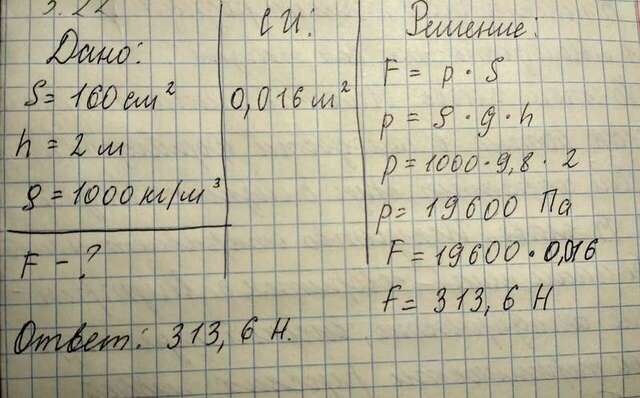 5.22
Дано:
S = 160 см²
h = 2 м
ρ = 1000 кг/м³
F - ?
СИ:
0,016 м²
Решение:
F = p · S
p = ρ · g · h
p = 1000 · 9,8 · 2
p = 19600 Па
F = 19600 · 0,016
F = 313,6 Н
Ответ: 313,6 Н.